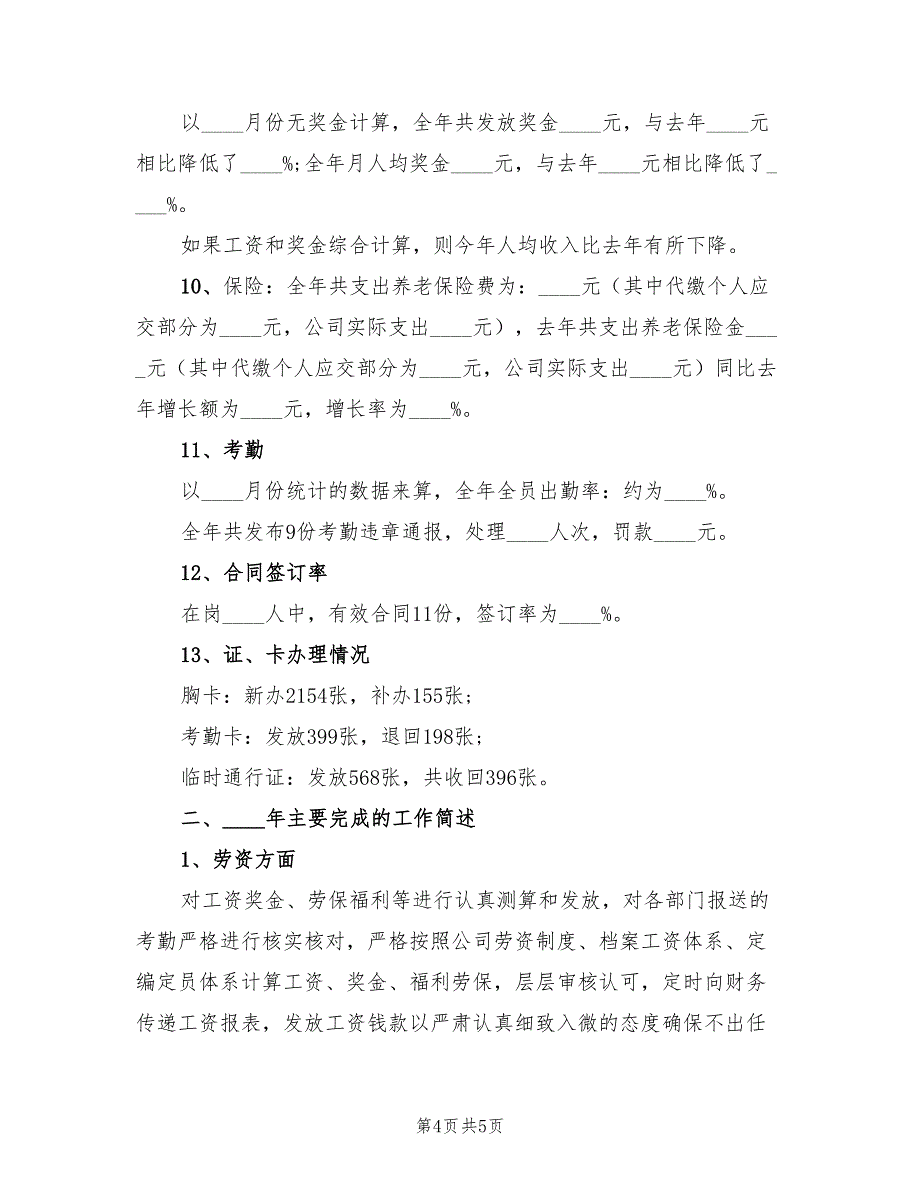 以____月份无奖金计算，全年共发放奖金____元，与去年____元
相比降低了____%;全年月人均奖金____元，与去年____元相比降低了_
___%。
如果工资和奖金综合计算，则今年人均收入比去年有所下降。
10、保险：全年共支出养老保险费为：____元（其中代缴个人应
交部分为____元，公司实际支出____元），去年共支出养老保险金___
_元（其中代缴个人应交部分为____元，公司实际支出____元）同比去
年增长额为____元，增长率为____%。
11、考勤
以____月份统计的数据来算，全年全员出勤率：约为____%。
全年共发布9份考勤违章通报，处理____人次，罚款____元。
12、合同签订率
在岗____人中，有效合同11份，签订率为____%。
13、证、卡办理情况
胸卡：新办2154张，补办155张;
考勤卡：发放399张，退回198张;
临时通行证：发放568张，共收回396张。
二、____年主要完成的工作简述
1、劳资方面
对工资奖金、劳保福利等进行认真测算和发放，对各部门报送的
考勤严格进行核实核对，严格按照公司劳资制度、档案工资体系、定
编定员体系计算工资、奖金、福利劳保，层层审核认可，定时向财务
传递工资报表，发放工资钱款以严肃认真细致入微的态度确保不出任
第4页共5页